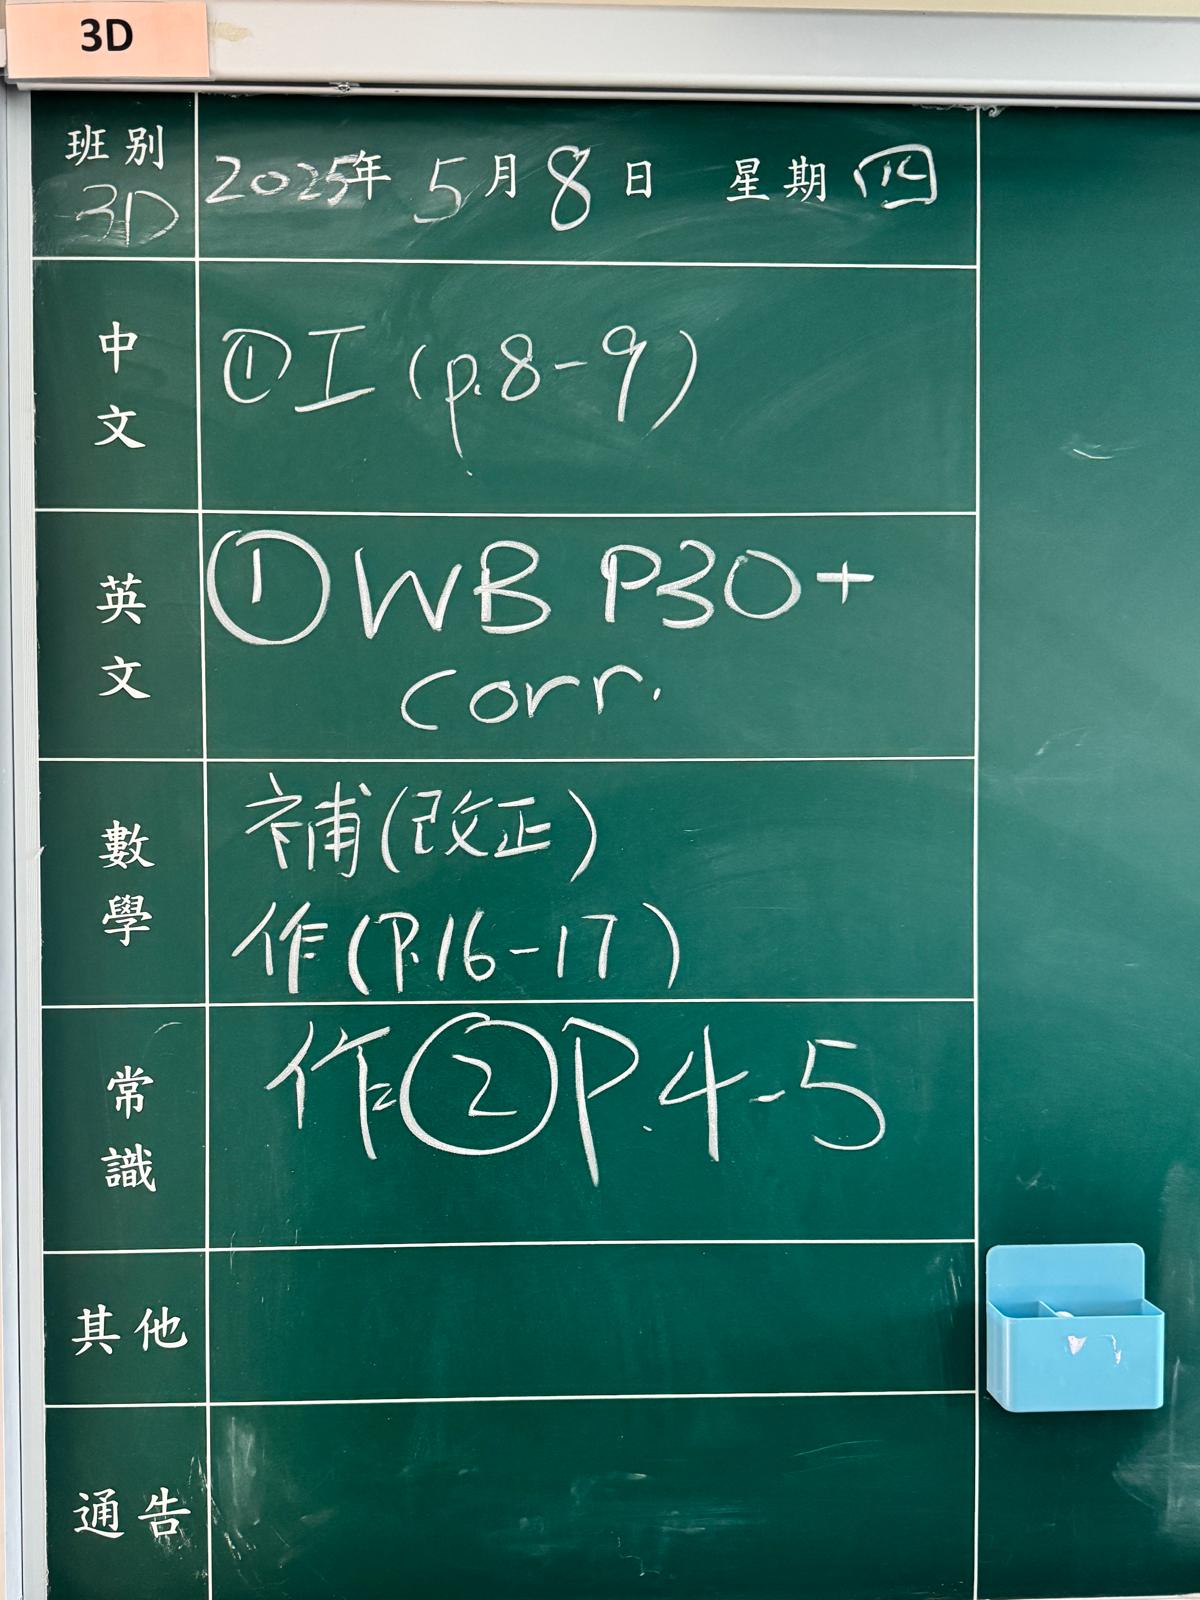 3D
班別 2025年 5月8日 星期四
3D
中文 ①工(p.8-9)
英文 ①WB P30+
corr.
數學 補(改正)
作(P.16-17)
常識 作②P.4-5
其他
通告